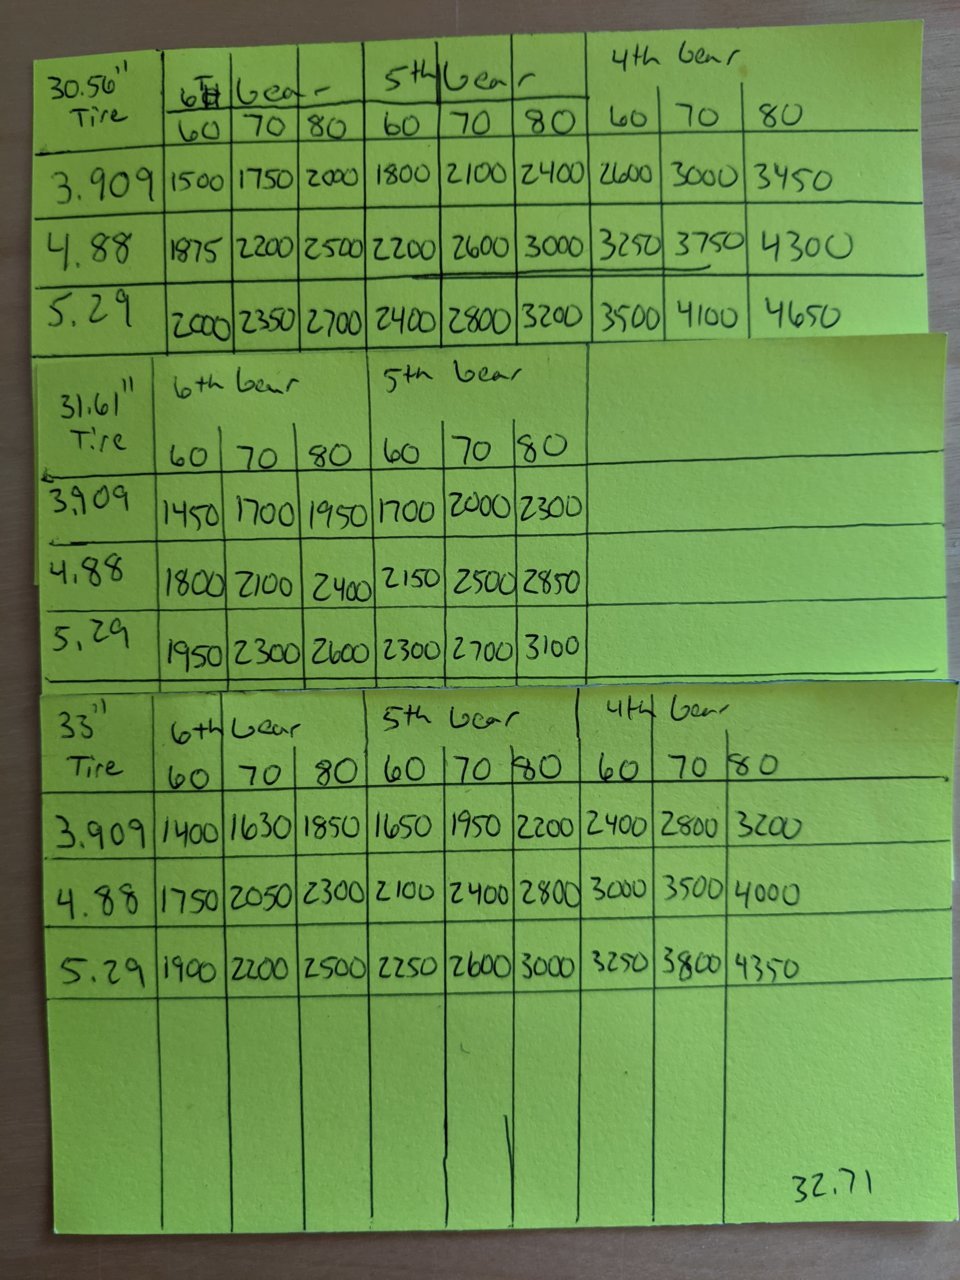 30.56" 6TH Gear 5th Gear 4th Gear
Tire 60 70 80 60 70 80 60 70 80
3.909 1500 1750 2000 1800 2100 2400 2600 3000 3450
4.88 1875 2200 2500 2200 2600 3000 3250 3750 4300
5.29 2000 2350 2700 2400 2800 3200 3500 4100 4650
31.61" 6th Gear 5th Gear
Tire 60 70 80 60 70 80
3.909 1450 1700 1950 1700 2000 2300
4.88 1800 2100 2400 2150 2500 2850
5.29 1950 2300 2600 2300 2700 3100
33" 6th Gear 5th Gear 4th Gear
Tire 60 70 80 60 70 80 60 70 80
3.909 1400 1630 1850 1650 1950 2200 2400 2800 3200
4.88 1750 2050 2300 2100 2400 2800 3000 3500 4000
5.29 1900 2200 2500 2250 2600 3000 3250 3800 4350
32.71